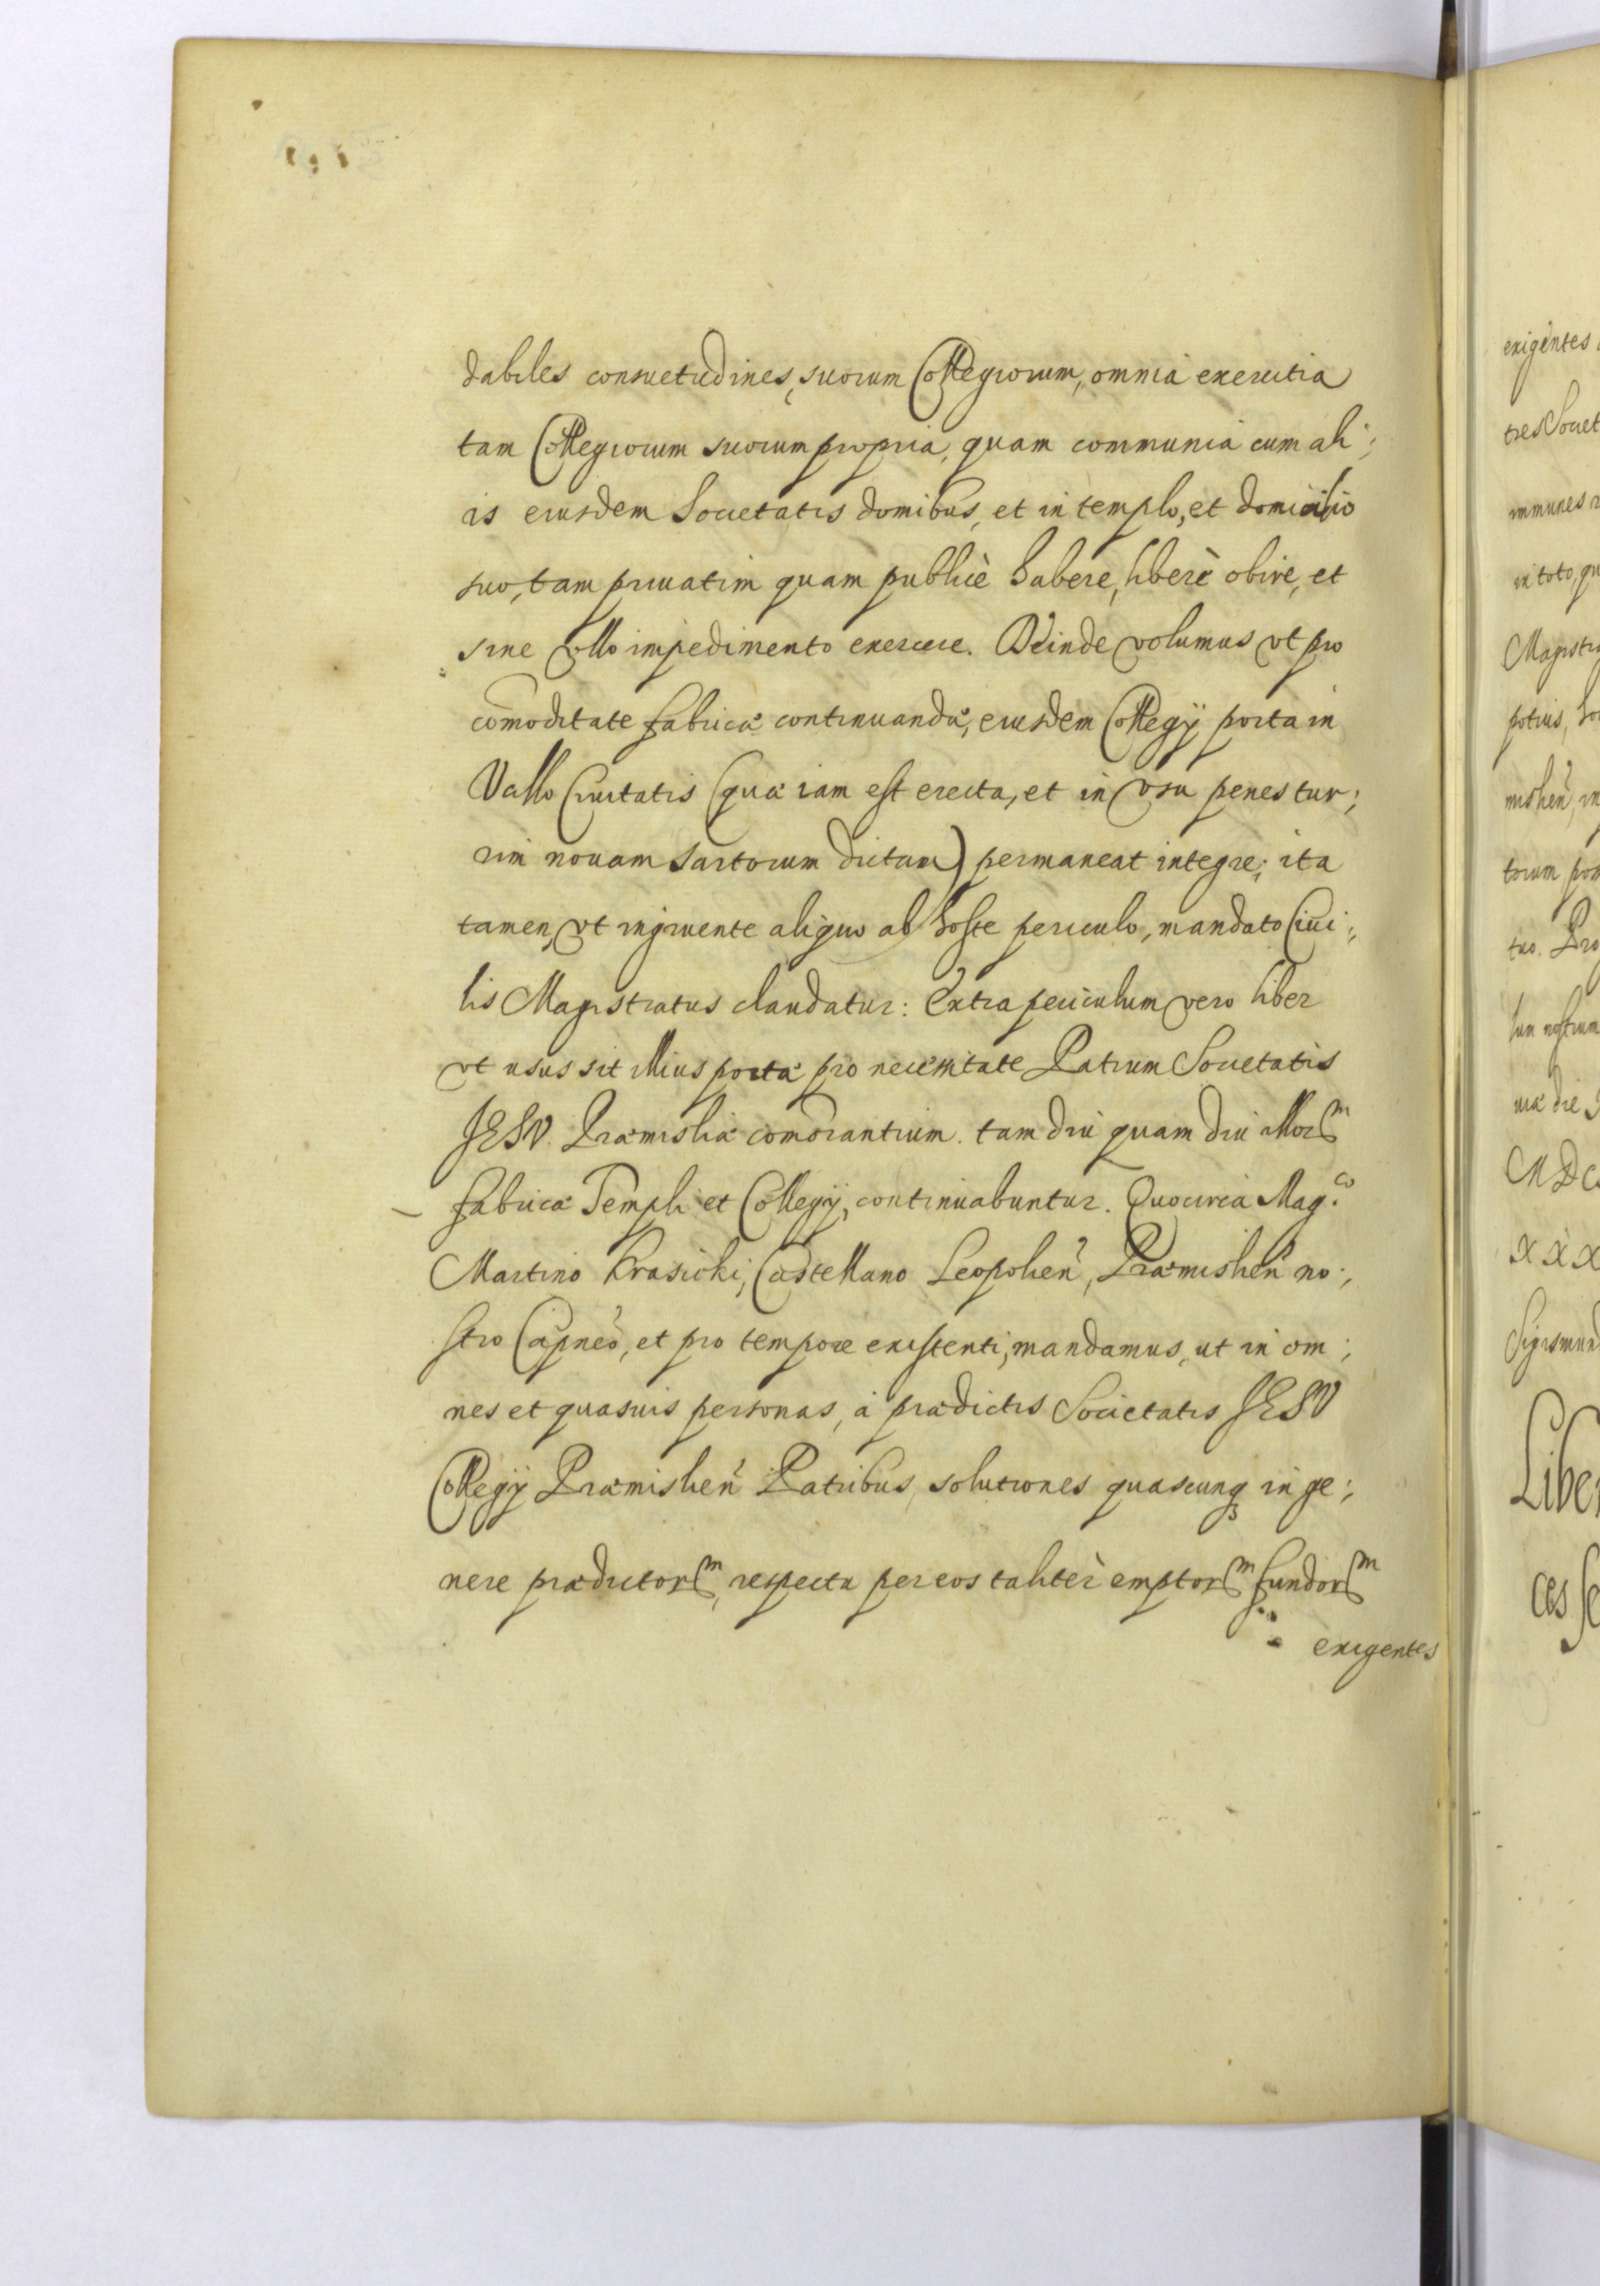 dabiles consuetudines, suorum Collegiorum, omnia exercitia
tam Collegiorum suorum propria, quam communia cum ali;
is eiusdem Societatis domibus, et in templo, et domicilio
suo, tam priuatim quam publicè habere, liberè obire, et
sine vllo impedimento exercere. Deinde volumus vt pro
com̃oditate fabricæ continuandæ, eiusdem Collegÿ porta in
Vallo Ciuitatis (quæ iam est erecta, et in vsu penes tur;
rim nouam Sartorum dictam) permaneat integre; ita
tamen, vt ingruente aliquo ab hoste periculo, mandato Ciui;
lis Magistratus claudatur: Extra periculum vero liber
vt usus sit illius portæ pro necessitate Patrum Societatis
JESV. Præmisliæ comorantium. tam diu quam diu illorᵐ
fabricæ Templi et Collegÿ, continuabuntur. Quocirca Mag.ᶜᵒ
Martino Krasicki, Castellano Leopolien̄, Præmislien̄ no;
stro Capneo, et pro tempore existenti, mandamus, ut in om;
nes et quasuis personas, à prædictis Societatis JESV
Collegÿ Præmislien̄ Patribus, solutiones quascunq in ge;
nere prædictorᵐ, respectu per eos taliter emptorᵐ fundorᵐ
exigentes
exigentes
immunes
in toto, qu
Magistra
potius, ho
mislien̄, in
torum
tuo. Pro
MDC
XXX
Sigismund
Liber